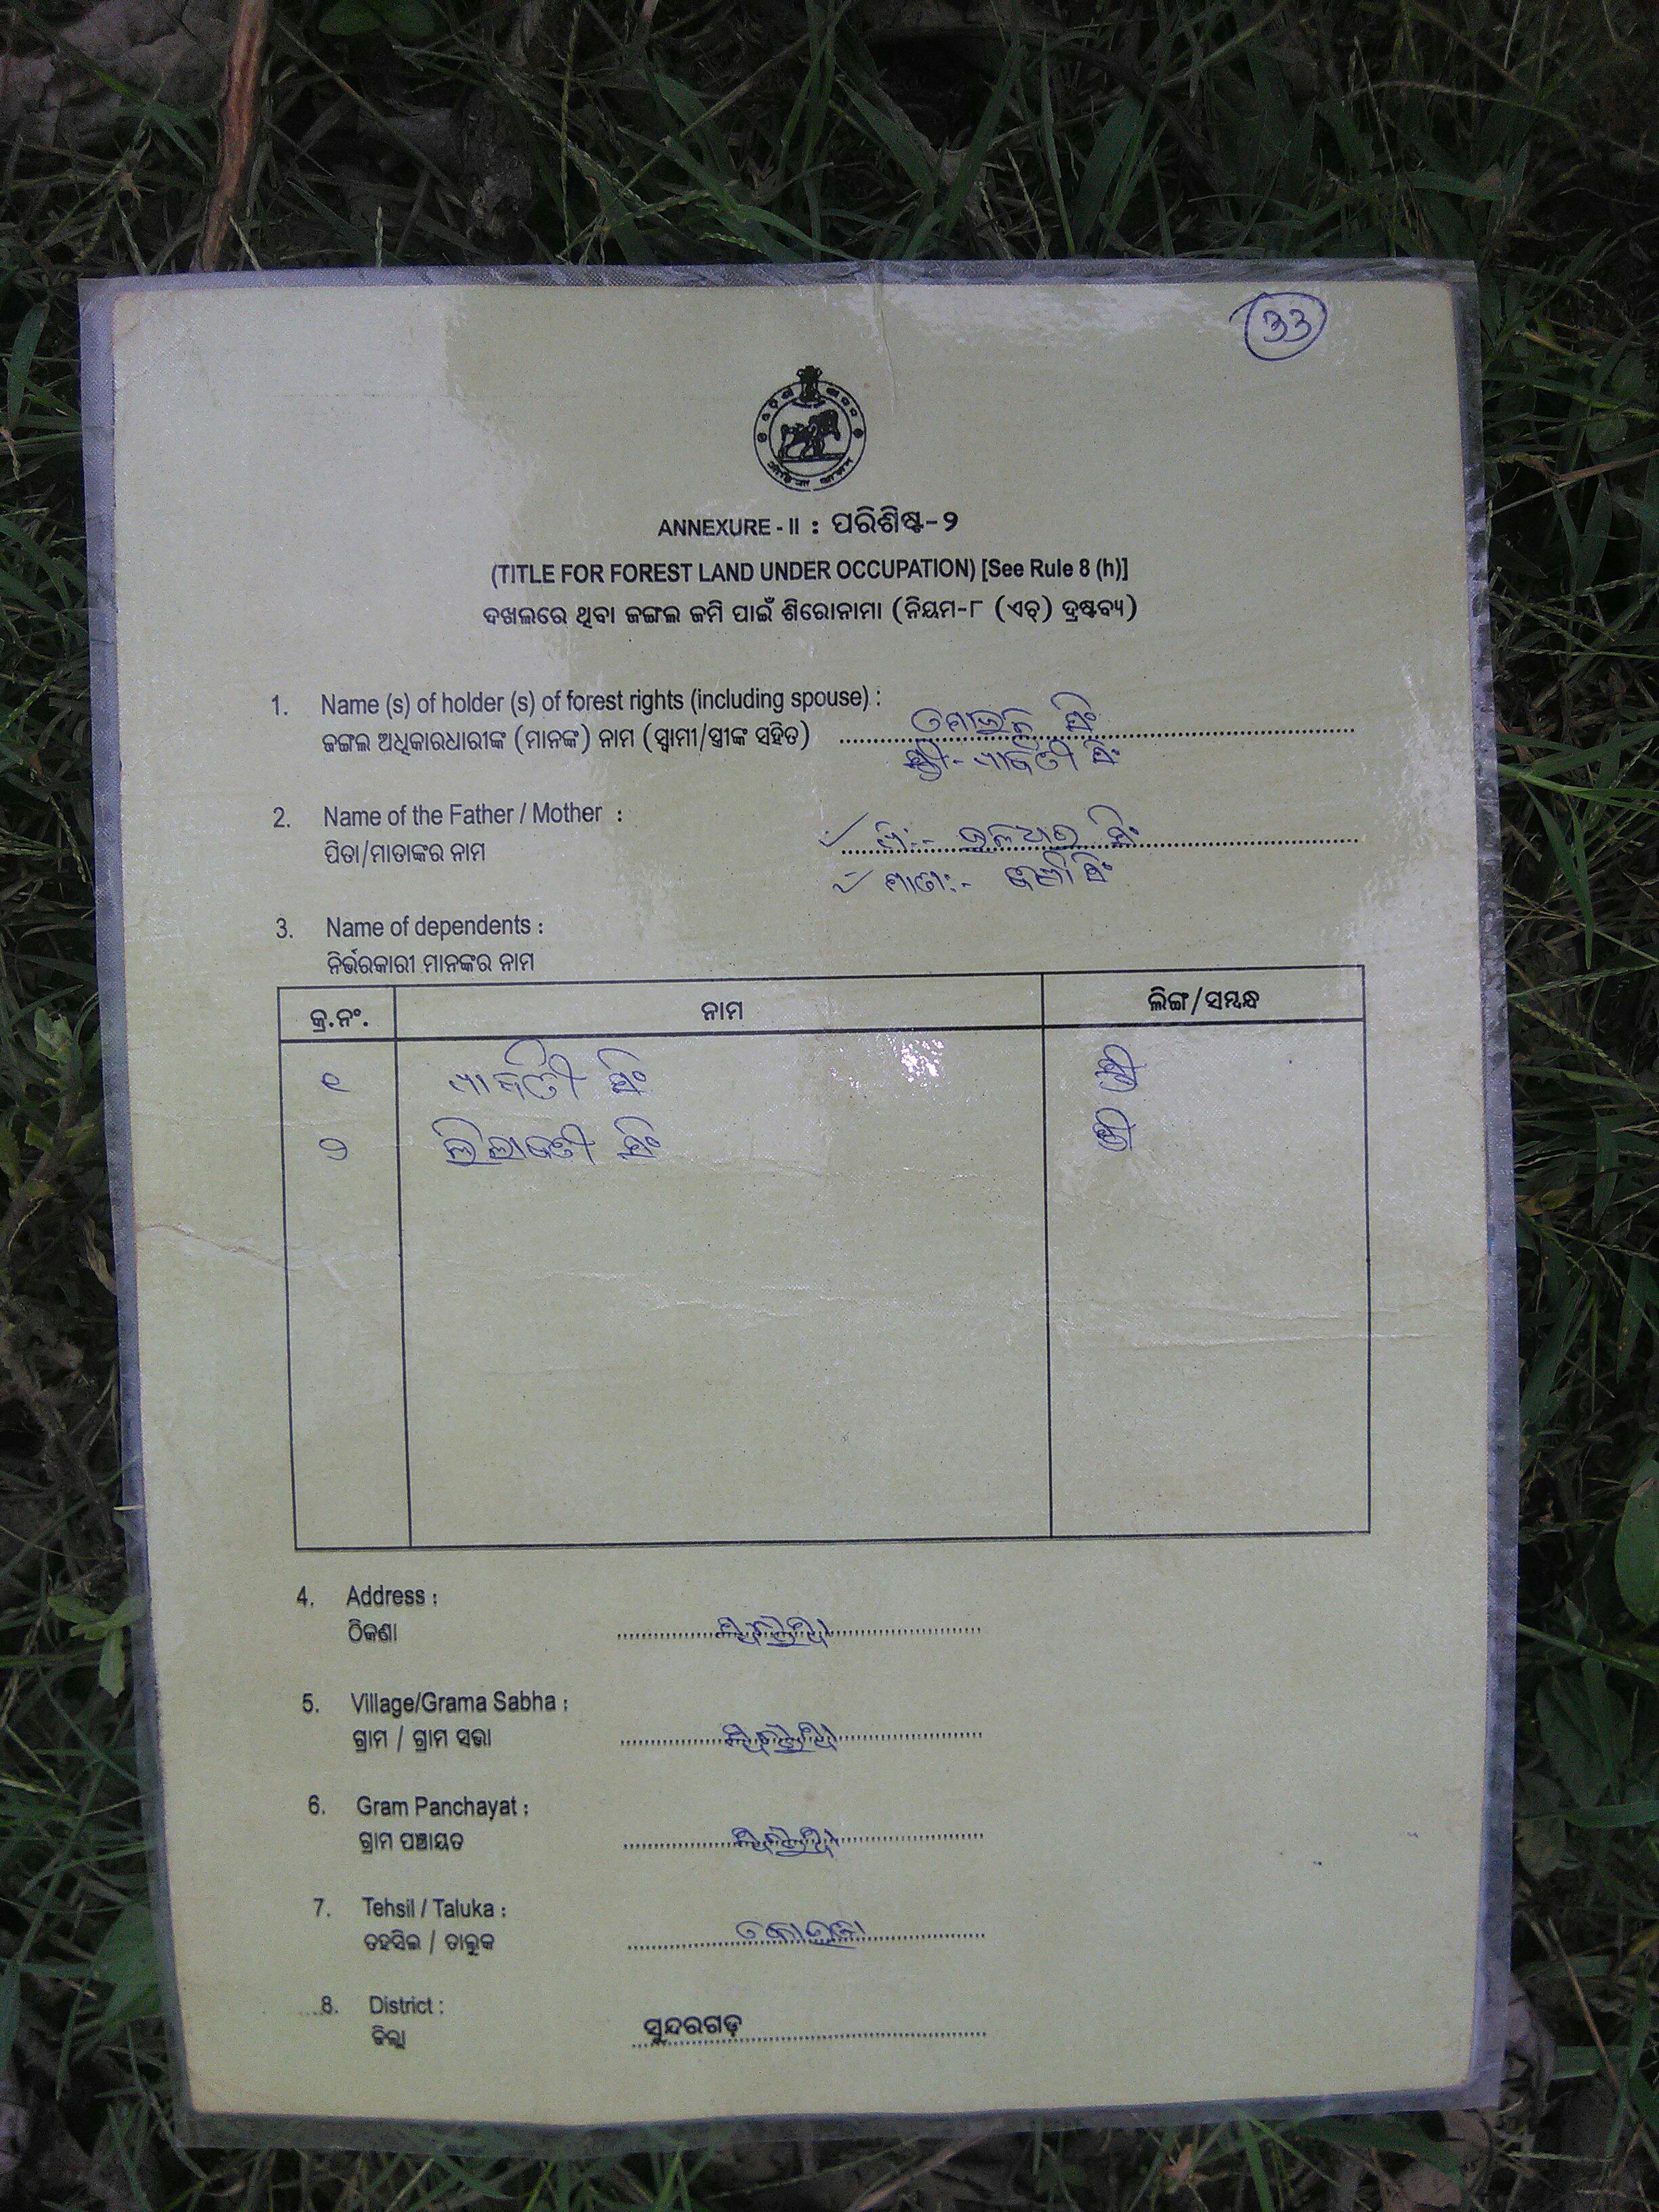 33
ANNEXURE - II : ପରିଶିଷ୍ଟ-୨
(TITLE FOR FOREST LAND UNDER OCCUPATION) [See Rule 8 (h)]
ଦଖଲରେ ଥିବା ଜଙ୍ଗଲ ଜମି ପାଇଁ ଶିରୋନାମା (ନିୟମ-୮ (ଏଚ୍) ଦ୍ରଷ୍ଟବ୍ୟ)
1. Name (s) of holder (s) of forest rights (including spouse) :
ଜଙ୍ଗଲ ଅଧିକାରଧାରୀଙ୍କ (ମାନଙ୍କ) ନାମ (ସ୍ୱାମୀ/ସ୍ତ୍ରୀଙ୍କ ସହିତ) ସିଂ
ସ୍ତ୍ରୀ- ପାର୍ବତୀ ସିଂ
2. Name of the Father / Mother :
ପିତା/ମାତାଙ୍କର ନାମ ସିଂ
ମାତା:- ସିଂ
3. Name of dependents :
ନିର୍ଭରକାରୀ ମାନଙ୍କର ନାମ
କ୍ର.ନଂ. ନାମ ଲିଙ୍ଗ/ସମ୍ବନ୍ଧ
୧ ପାର୍ବତୀ ସିଂ ସ୍ତ୍ରୀ
୨ ଲିଲାବତୀ ସିଂ ସ୍ତ୍ରୀ
4. Address :
ଠିକଣା
5. Village/Grama Sabha :
ଗ୍ରାମ / ଗ୍ରାମ ସଭା
6. Gram Panchayat :
ଗ୍ରାମ ପଞ୍ଚାୟତ
7. Tehsil / Taluka :
ତହସିଲ / ତାଲୁକ
8. District :
ଜିଲ୍ଲା ସୁନ୍ଦରଗଡ଼